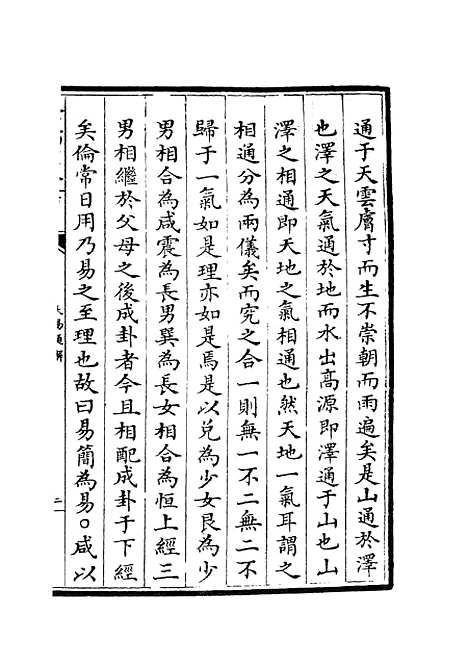 通于天雲膚寸而生不崇朝而雨遍矣是山通於澤
也澤之天氣通於地而水出高源即澤通于山也山
澤之相通即天地之氣相通也然天地一氣耳謂之
相通分為兩儀矣而究之合一則無一不二無二不
歸于一氣如是理亦如是焉是以兌為少女艮為少
男相合為咸震為長男巽為長女相合為恒上經三
男相繼於父母之後成卦者今且相配成卦于下經
矣倫常日用乃易之至理也故曰易簡為易○咸以
易通解
二